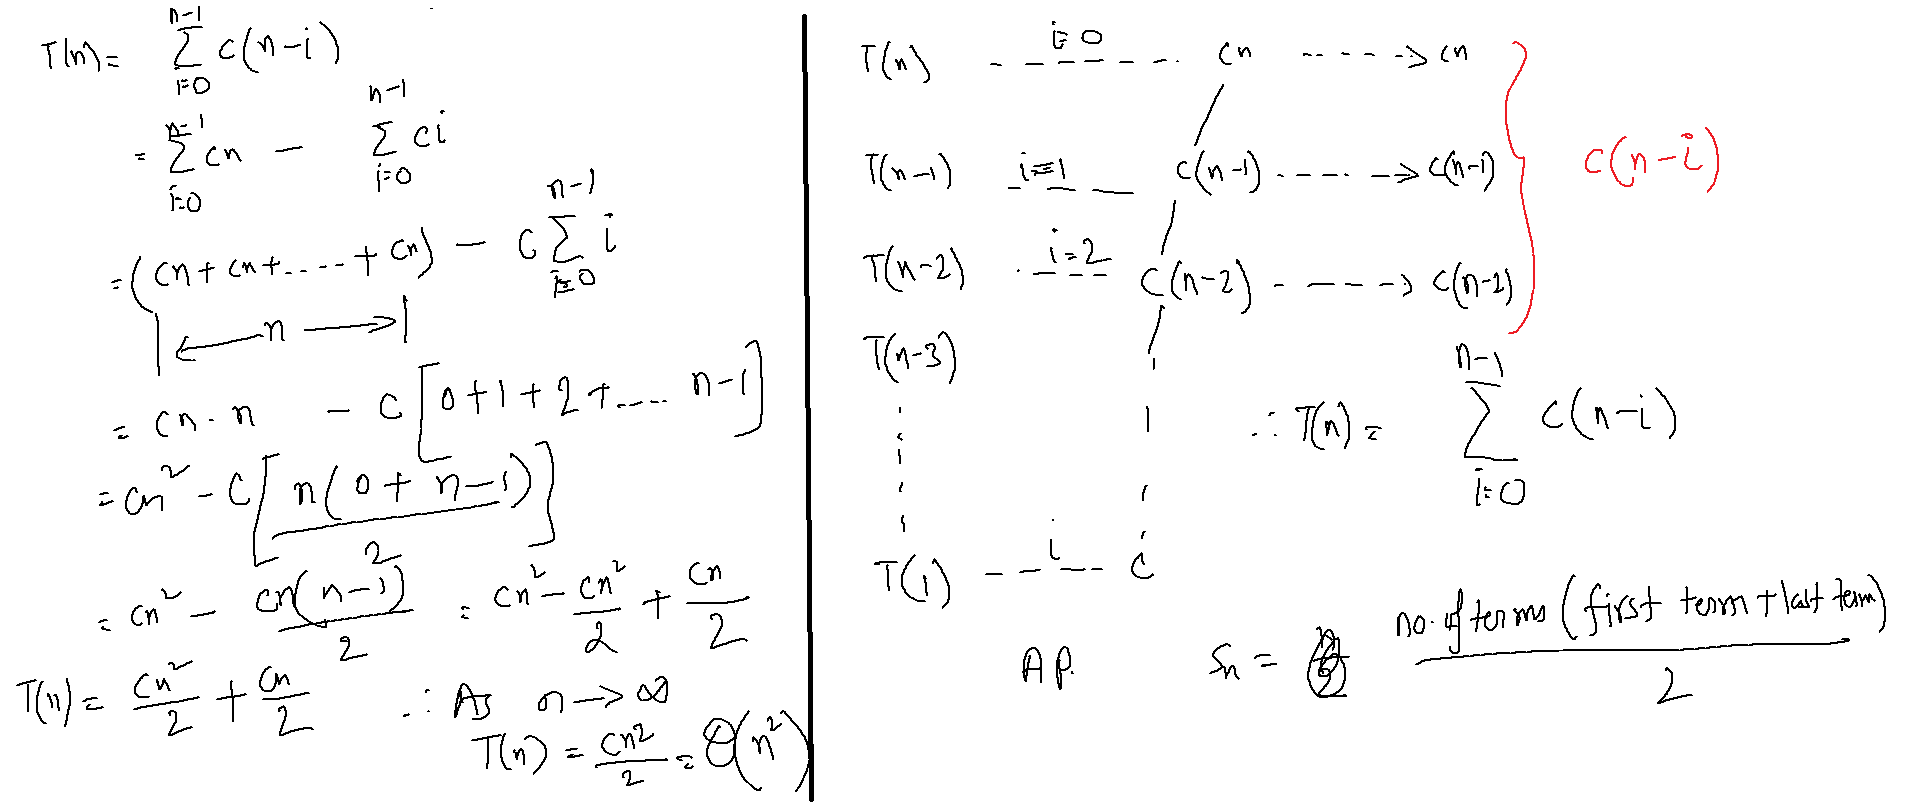 T(n) = \sum_{i=0}^{n-1} c(n-i)
= \sum_{i=0}^{n-1} cn - \sum_{i=0}^{n-1} ci
= (cn + cn + ..... + cn) - c \sum_{i=0}^{n-1} i
|<- n ->|
= cn.n - c [0+1+2+..... n-1]
= cn^2 - c [n(0+n-1)/2]
= cn^2 - cn(n-1)/2 = cn^2 - cn^2/2 + cn/2
T(n) = cn^2/2 + cn/2 ∴ As n → ∞
T(n) = cn^2/2 = Θ(n^2)
T(n) ------ i=0 ------ cn -----> cn
T(n-1) --- i=1 --- c(n-1) -----> c(n-1) c(n-i)
T(n-2) --- i=2 --- c(n-2) -----> c(n-2)
T(n-3)
∴ T(n) = \sum_{i=0}^{n-1} c(n-i)
T(1) ---- i ---- c
A.P. Sn = no. of terms (first term + last term)/2